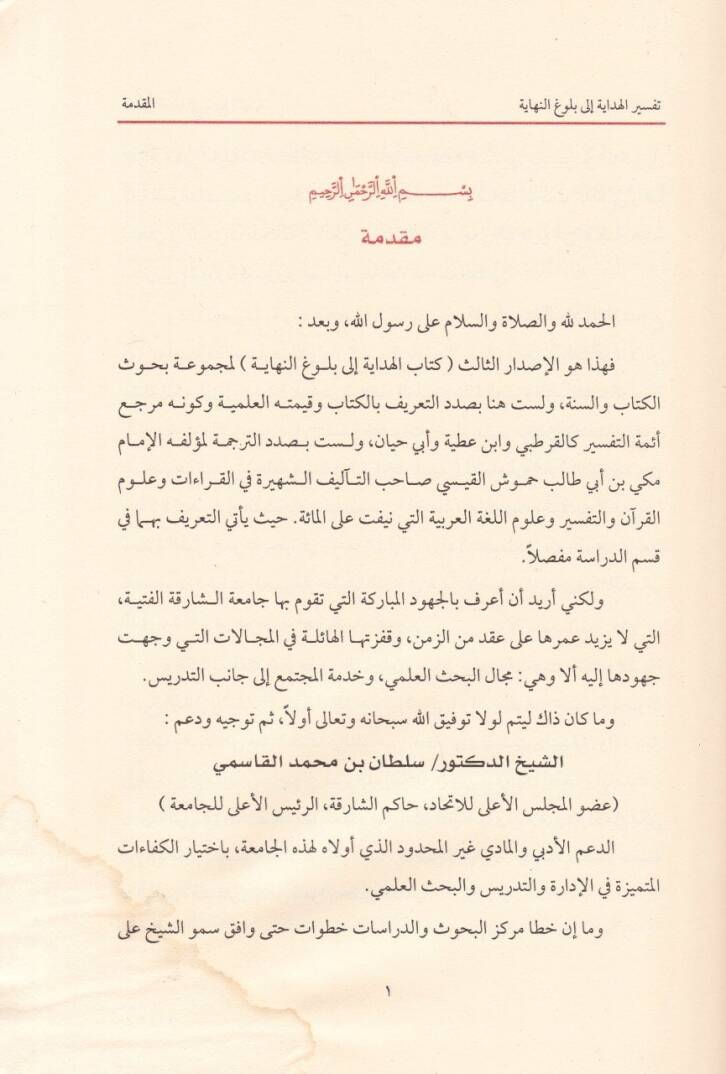 تفسير الهداية إلى بلوغ النهاية المقدمة
بِسْمِ اِللَّهِ اِلرَّحْمَٰنِ اِلرَّحِيمِ
مقدمة
الحمد لله والصلاة والسلام على رسول الله، وبعد :
فهذا هو الإصدار الثالث ( كتاب الهداية إلى بلوغ النهاية ) لمجموعة بحوث
الكتاب والسنة، ولست هنا بصدد التعريف بالكتاب وقيمته العلمية وكونه مرجع
أئمة التفسير كالقرطبي وابن عطية وأبي حيان، ولست بصدد الترجمة لمؤلفه الإمام
مكي بن أبي طالب حموش القيسي صاحب التآليف الشهيرة في القراءات وعلوم
القرآن والتفسير وعلوم اللغة العربية التي نيفت على المائة. حيث يأتي التعريف بهما في
قسم الدراسة مفصلاً.
ولكني أريد أن أعرف بالجهود المباركة التي تقوم بها جامعة الشارقة الفتية،
التي لا يزيد عمرها على عقد من الزمن، وقفزتها الهائلة في المجالات التي وجهت
جهودها إليه ألا وهي: مجال البحث العلمي، وخدمة المجتمع إلى جانب التدريس.
وما كان ذاك ليتم لولا توفيق الله سبحانه وتعالى أولاً، ثم توجيه ودعم :
الشيخ الدكتور/ سلطان بن محمد القاسمي
(عضو المجلس الأعلى للاتحاد، حاكم الشارقة، الرئيس الأعلى للجامعة )
الدعم الأدبي والمادي غير المحدود الذي أولاه لهذه الجامعة، باختيار الكفاءات
المتميزة في الإدارة والتدريس والبحث العلمي.
وما إن خطا مركز البحوث والدراسات خطوات حتى وافق سمو الشيخ على
١